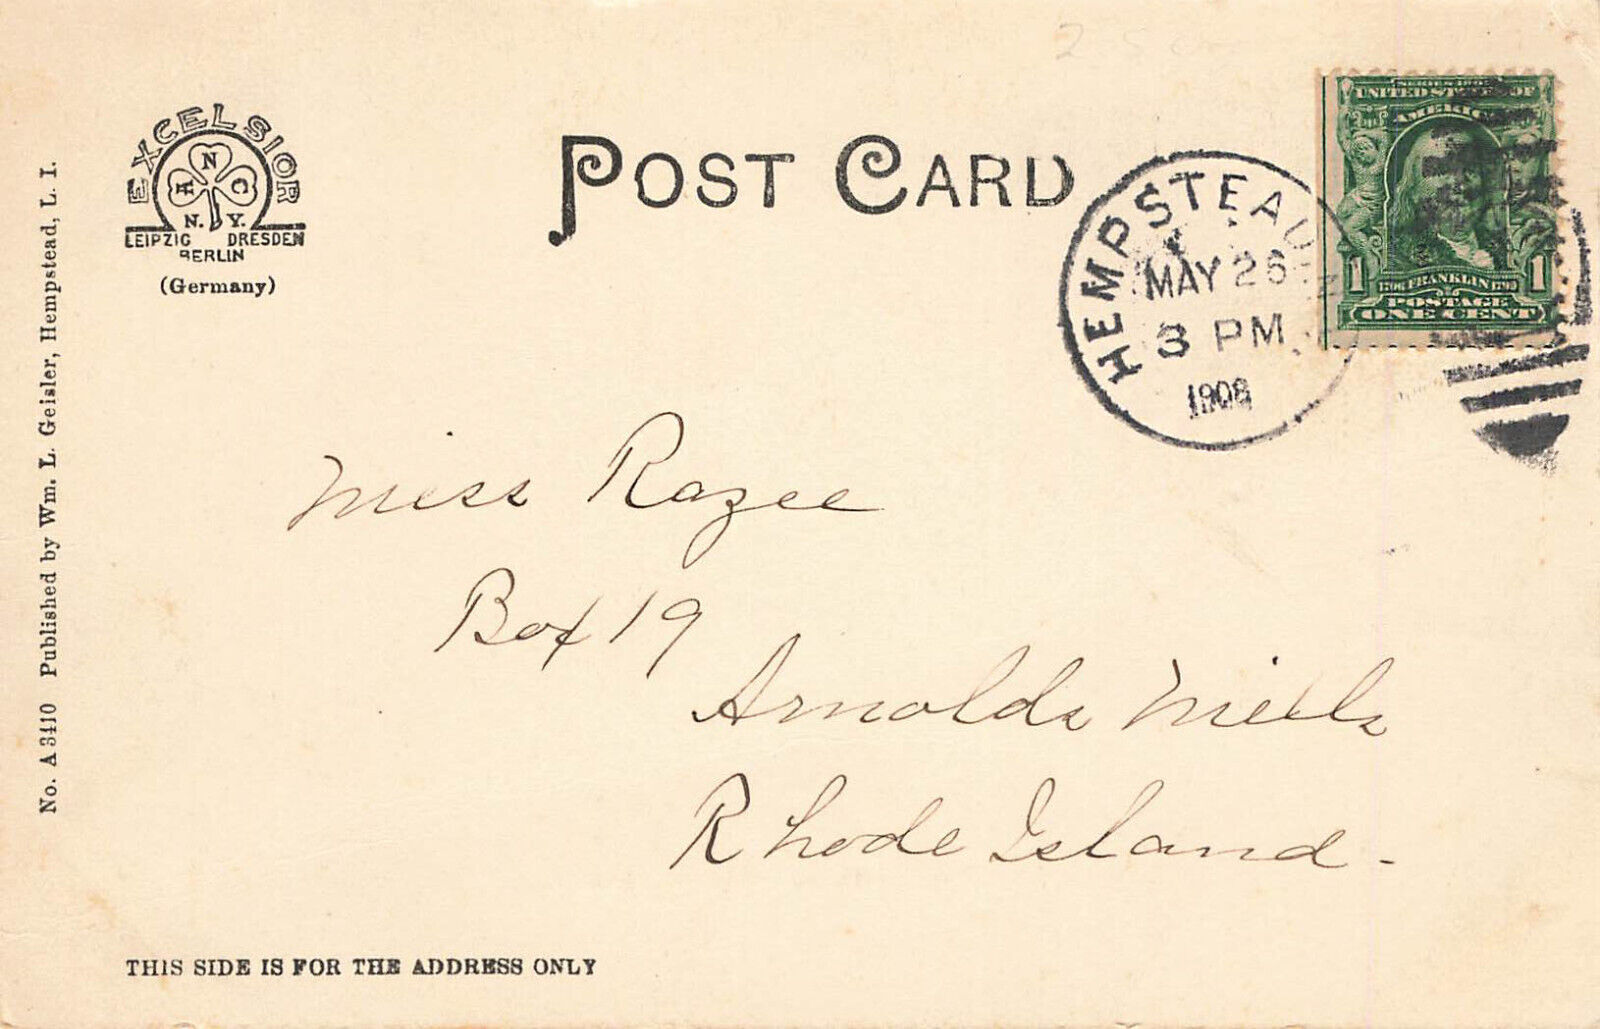 EXCELSIOR
A N C
N. Y.
LEIPZIG DRESDEN
BERLIN
(Germany)
POST CARD
HEMPSTEAD
MAY 26
3 PM
1908
UNITED STATES OF
AMERICA
1 FRANKLIN 1
POSTAGE
ONE CENT
Miss Razee
Box 19
Arnolds Mills
Rhode Island -
No. A 3410 Published by Wm. L. Geisler, Hempstead, L. I.
THIS SIDE IS FOR THE ADDRESS ONLY